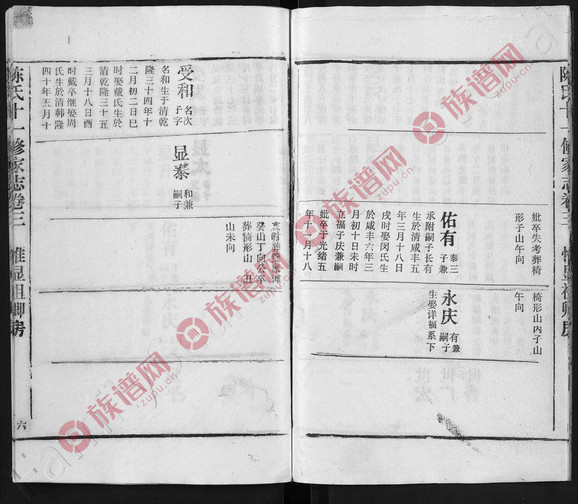 陈氏十一修家志卷三 惟显祖卿房
妣卒失考葬椅
形子山午向
佑有 泰三子兼
承附嗣子长有
生於清咸丰五
年三月十八日
戌时娶闵氏生
於咸丰六年三
月初十日未时
立福子庆兼嗣
妣卒于光绪五
年十二月十八
椅形山内子山
午向
永庆 有兼嗣子
生娶详福系下
受和 名次子字
名和生于清乾
隆三十四年十
二月初二日巳
时娶戴氏生於
清乾隆三十五
三月十八日酉
时戴卒继娶周
氏生於清韩隆
四十年五月十
显泰 和兼嗣子
癸山丁向公卒
葬椅形山 丑
山未向
陈氏十一修家志卷三 惟显祖卿房 六
族谱网
zupu.cn
族谱网
zupu.cn
族谱网
zupu.cn
族谱网
zupu.cn